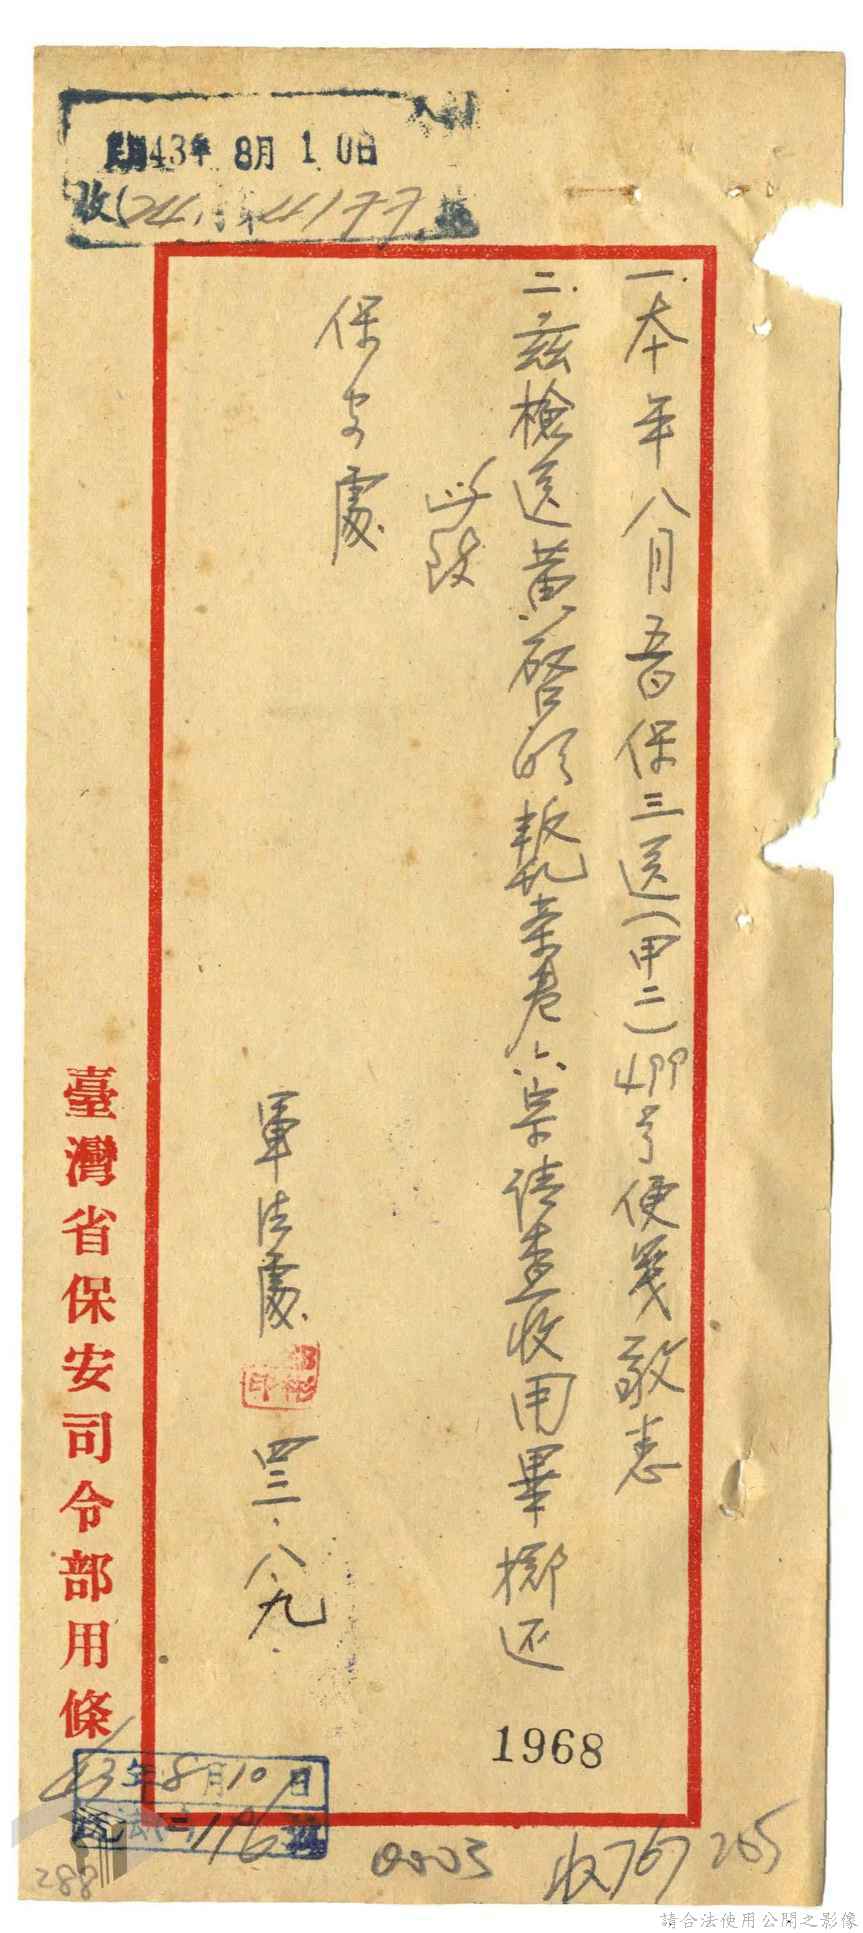 一.本年八月五日保三送(甲二)499号便箋敬悉
二.茲檢送黃啓明叛亂案卷六宗請查收用畢擲还
此致
保安處
軍法處
四三.八.九.
臺灣省保安司令部用條
43年8月10日
收
43年8月10日
1968
0803
收767
265
288
請合法使用公開之影像